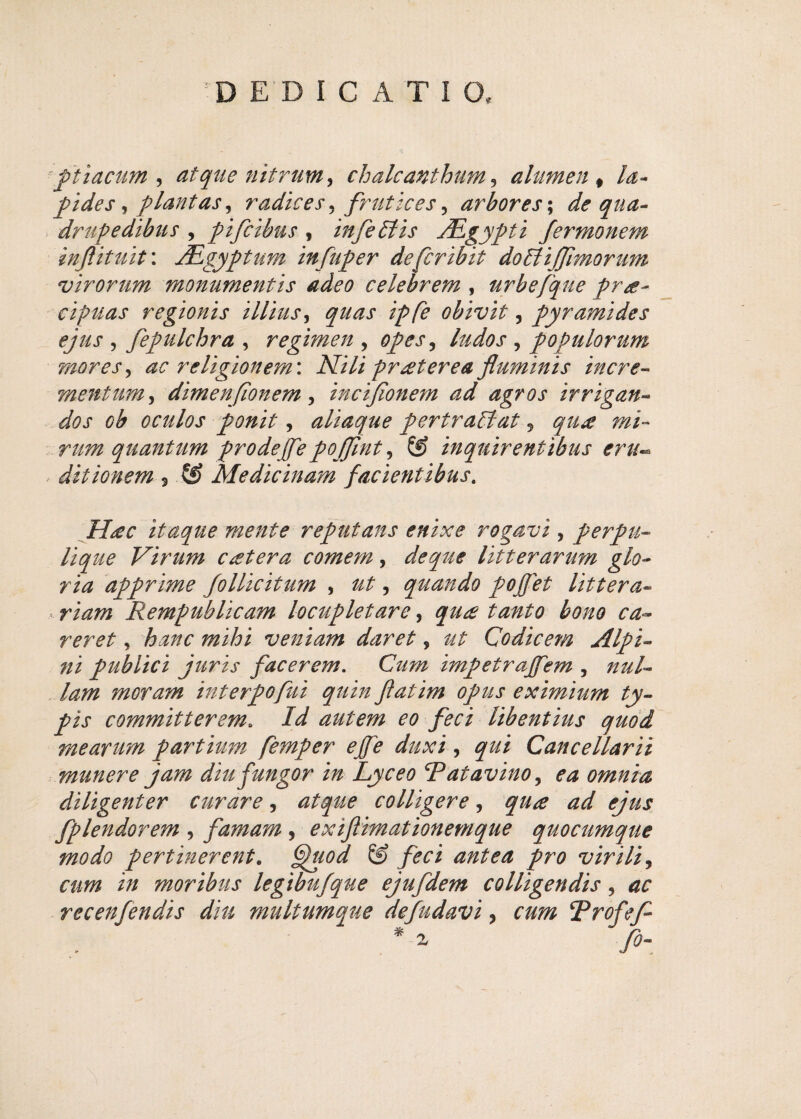 DEDICATIO,
ptiacum , atque nitrum, chalcanthum, alumen , la-
pides, plantas, radices, frutices, arbores; de qua-
drupedibus , piſcibus , inſectis Ægypti ſermonem
inſtituit: Ægyptum inſuper deſcribit doctiſſimorum
virorum monumentis adeo celebrem , urbeſque præ-
cipuas regionis illius, quas ipſe obivit , pyramides
ejus , ſepulchra , regimen , opes, ludos , populorum
mores, ac religionem: Nili præterea fluminis incre-
mentum, dimenſionem , inciſionem ad agros irrigan-
dos ob oculos ponit , aliaque pertractat , quæ mi-
rum quantum prodeſſe poſſint, & inquirentibus eru-
ditionem , & Medicinam facientibus.
Hæc itaque mente reputans enixe rogavi , perpu-
lique Virum cætera comem, deque litterarum glo-
ria apprime ſollicitum , ut , quando poſſet littera-
riam Rempublicam locupletare, quæ tanto bono ca-
reret , hanc mihi veniam daret , ut Codicem Alpi-
ni publici juris facerem. Cum impetraſſem , nul-
lam moram interpoſui quin ſtatim opus eximium ty-
pis committerem. Id autem eo feci libentius quod
mearum partium ſemper eſſe duxi , qui Cancellarii
munere jam diu fungor in Lyceo Patavino, ea omnia
diligenter curare , atque colligere , quæ ad ejus
ſplendorem , famam , exiſtimationemque quocumque
modo pertinerent. Quod & feci antea pro virili,
cum in moribus legibuſque ejuſdem colligendis , ac
recenſendis diu multumque deſudavi , cum Profeſ-
* 2 ſo-